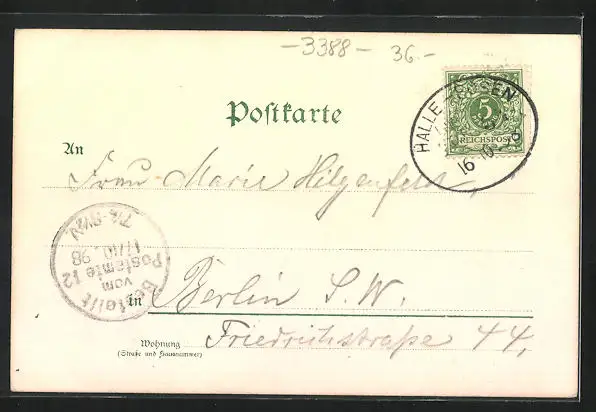 -3388- 36.-
Postkarte
5
REICHSPOST
HALLE
16 10
An
Frau Marie Hilgenfeld,
Bestellt
vom
Postamte 12
17/10. 98
7¼-8½V
in Berlin S. W.
Wohnung
(Straße und Hausnummer)
Friedrichstraße 44,